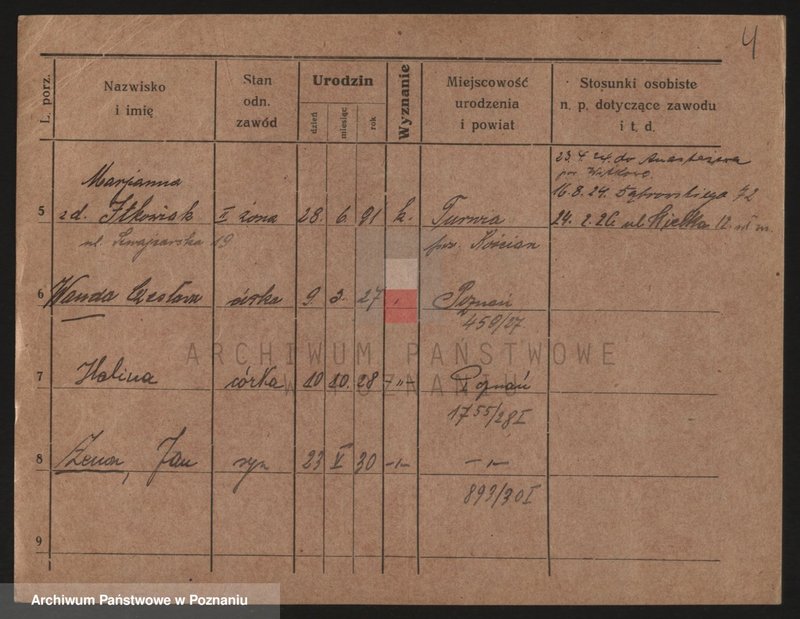 4
L. porz.
Nazwisko
i imię
Stan
odn.
zawód
Urodzin
dzień
miesiąc
rok
Wyznanie
Miejscowość
urodzenia
i powiat
Stosunki osobiste
n. p. dotyczące zawodu
i t. d.
23.4.24. do
pow. Witkowo
Marjanna
16.8.24. Dąbrowskiego 72
5 zd. II żona 28. 6. 91 k. Turwia 24. 2. 26 ul 12.
ul. 19 pow. Kościan
6 Wanda Czesława córka 9. 3. 27 Poznań
459/27
ARCHIWUM PAŃSTWOWE
W POZNANIU
7 Halina córka 10 10. 28 -"- Poznań
1755/28 I
8 Zenon, Jan syn 23 V 30 -"- -"-
893/30 I
9
Archiwum Państwowe w Poznaniu